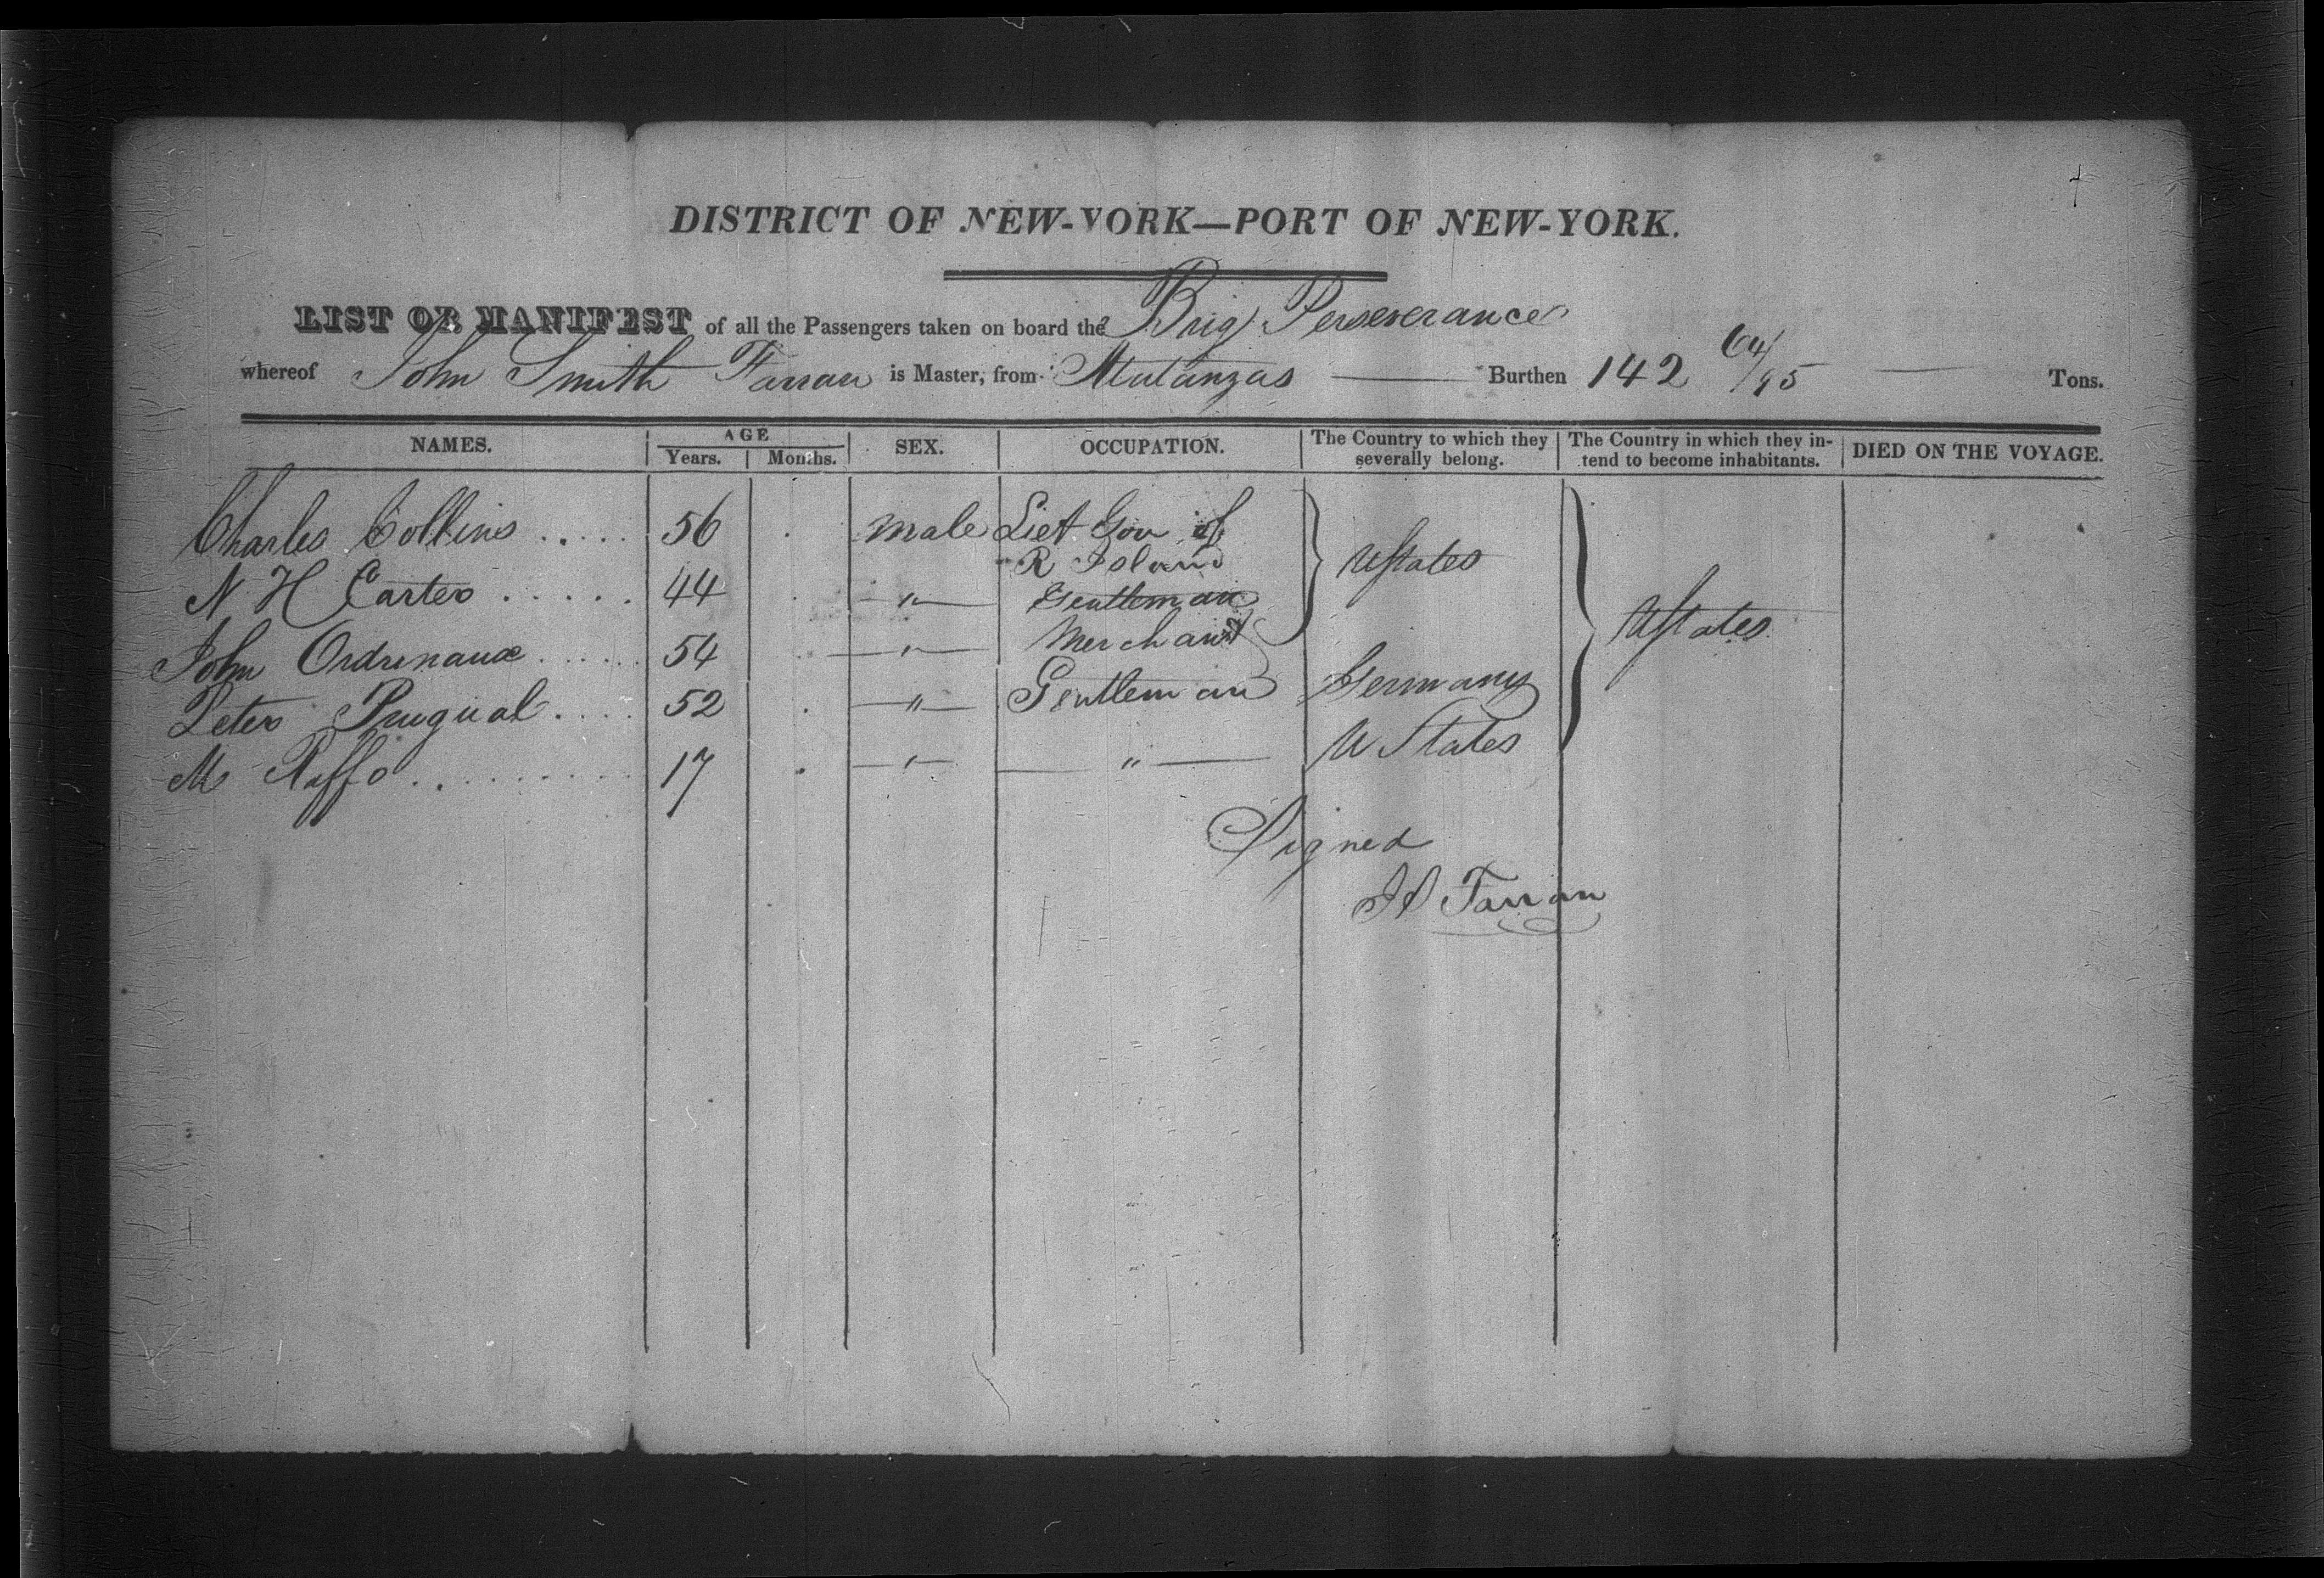 DISTRICT OF NEW-YORK—PORT OF NEW-YORK.
LIST OR MANIFEST of all the Passengers taken on board the Brig Perseverance
whereof John Smith Farran is Master, from Matanzas Burthen 142 64/95 Tons.
NAMES. AGE Years. Months. SEX. OCCUPATION. The Country to which they severally belong. The Country in which they intend to become inhabitants. DIED ON THE VOYAGE.
Charles Collins ..... 56 male Liet Gov of
R Island UStates
N H Carter ..... 44 " Gentleman
UStates
John Ordrenaux ..... 54 " Merchant
Peter .... 52 " Gentleman Germany
M Raffo ......... 17 " " U States
Signed
JS Farran